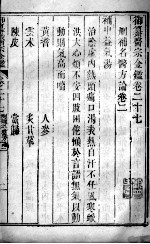 御纂醫宗金鑑卷二十七
刪補名醫方論卷二
補中益氣湯
治陰虛內熱頭痛口渴表熱自汗不任風寒脈
洪大心煩不安四肢困倦懶於言語無氣以動
動則氣高而喘
黃耆
人參
雲朮
炙甘草
陳皮
當歸